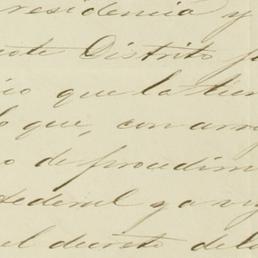 residencia y
este Distrito ju
cio que la tien
lo que, con arre
o de procedimi
Federal y a vi
el decreto de la